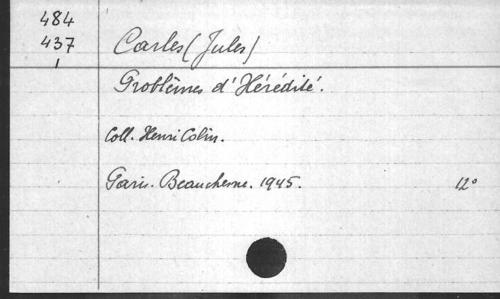 484
437 Carles (Jules)
1
Problèmes d'Hérédité.
Coll. Henri Colin.
Paris. Beauchesne. 1945. 12°